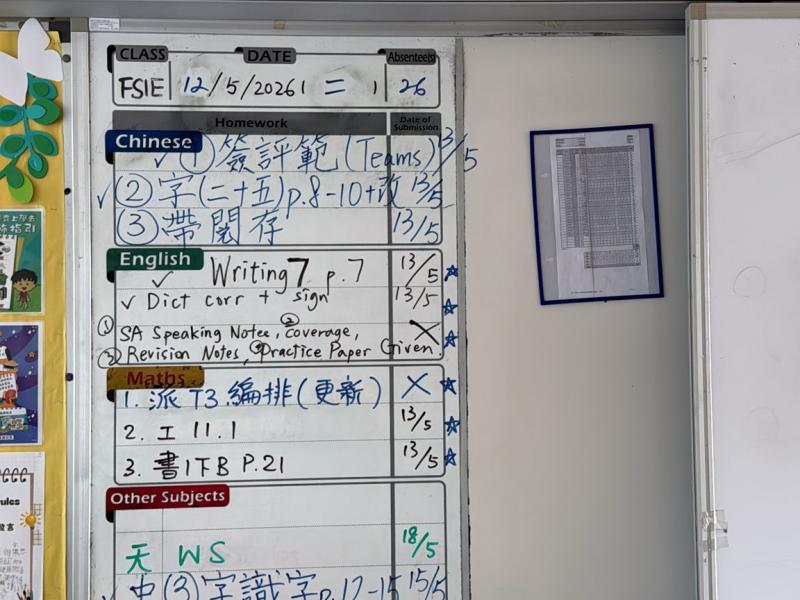 CLASS DATE Absentee(s)
FSIE 12/5/2026 二 26
Homework Date of Submission
Chinese
✓ ① 簽評範(Teams) 13/5
✓ ② 字(二十五)p.8-10+改 13/5
③ 帶閱存 13/5
English
✓ Writing 7 p.7 13/5 ☆
✓ Dict corr + sign 13/5 ☆
① SA Speaking Notes, ② coverage, X ☆
③ Revision Notes, ④ Practice Paper Given.
Maths
1. 派 T3 編排(更新) X ☆
2. 工 11.1 13/5 ☆
3. 書1下B P.21 13/5 ☆
Other Subjects
天 WS 18/5
✓ 中(3)字識字p.12-15 15/5